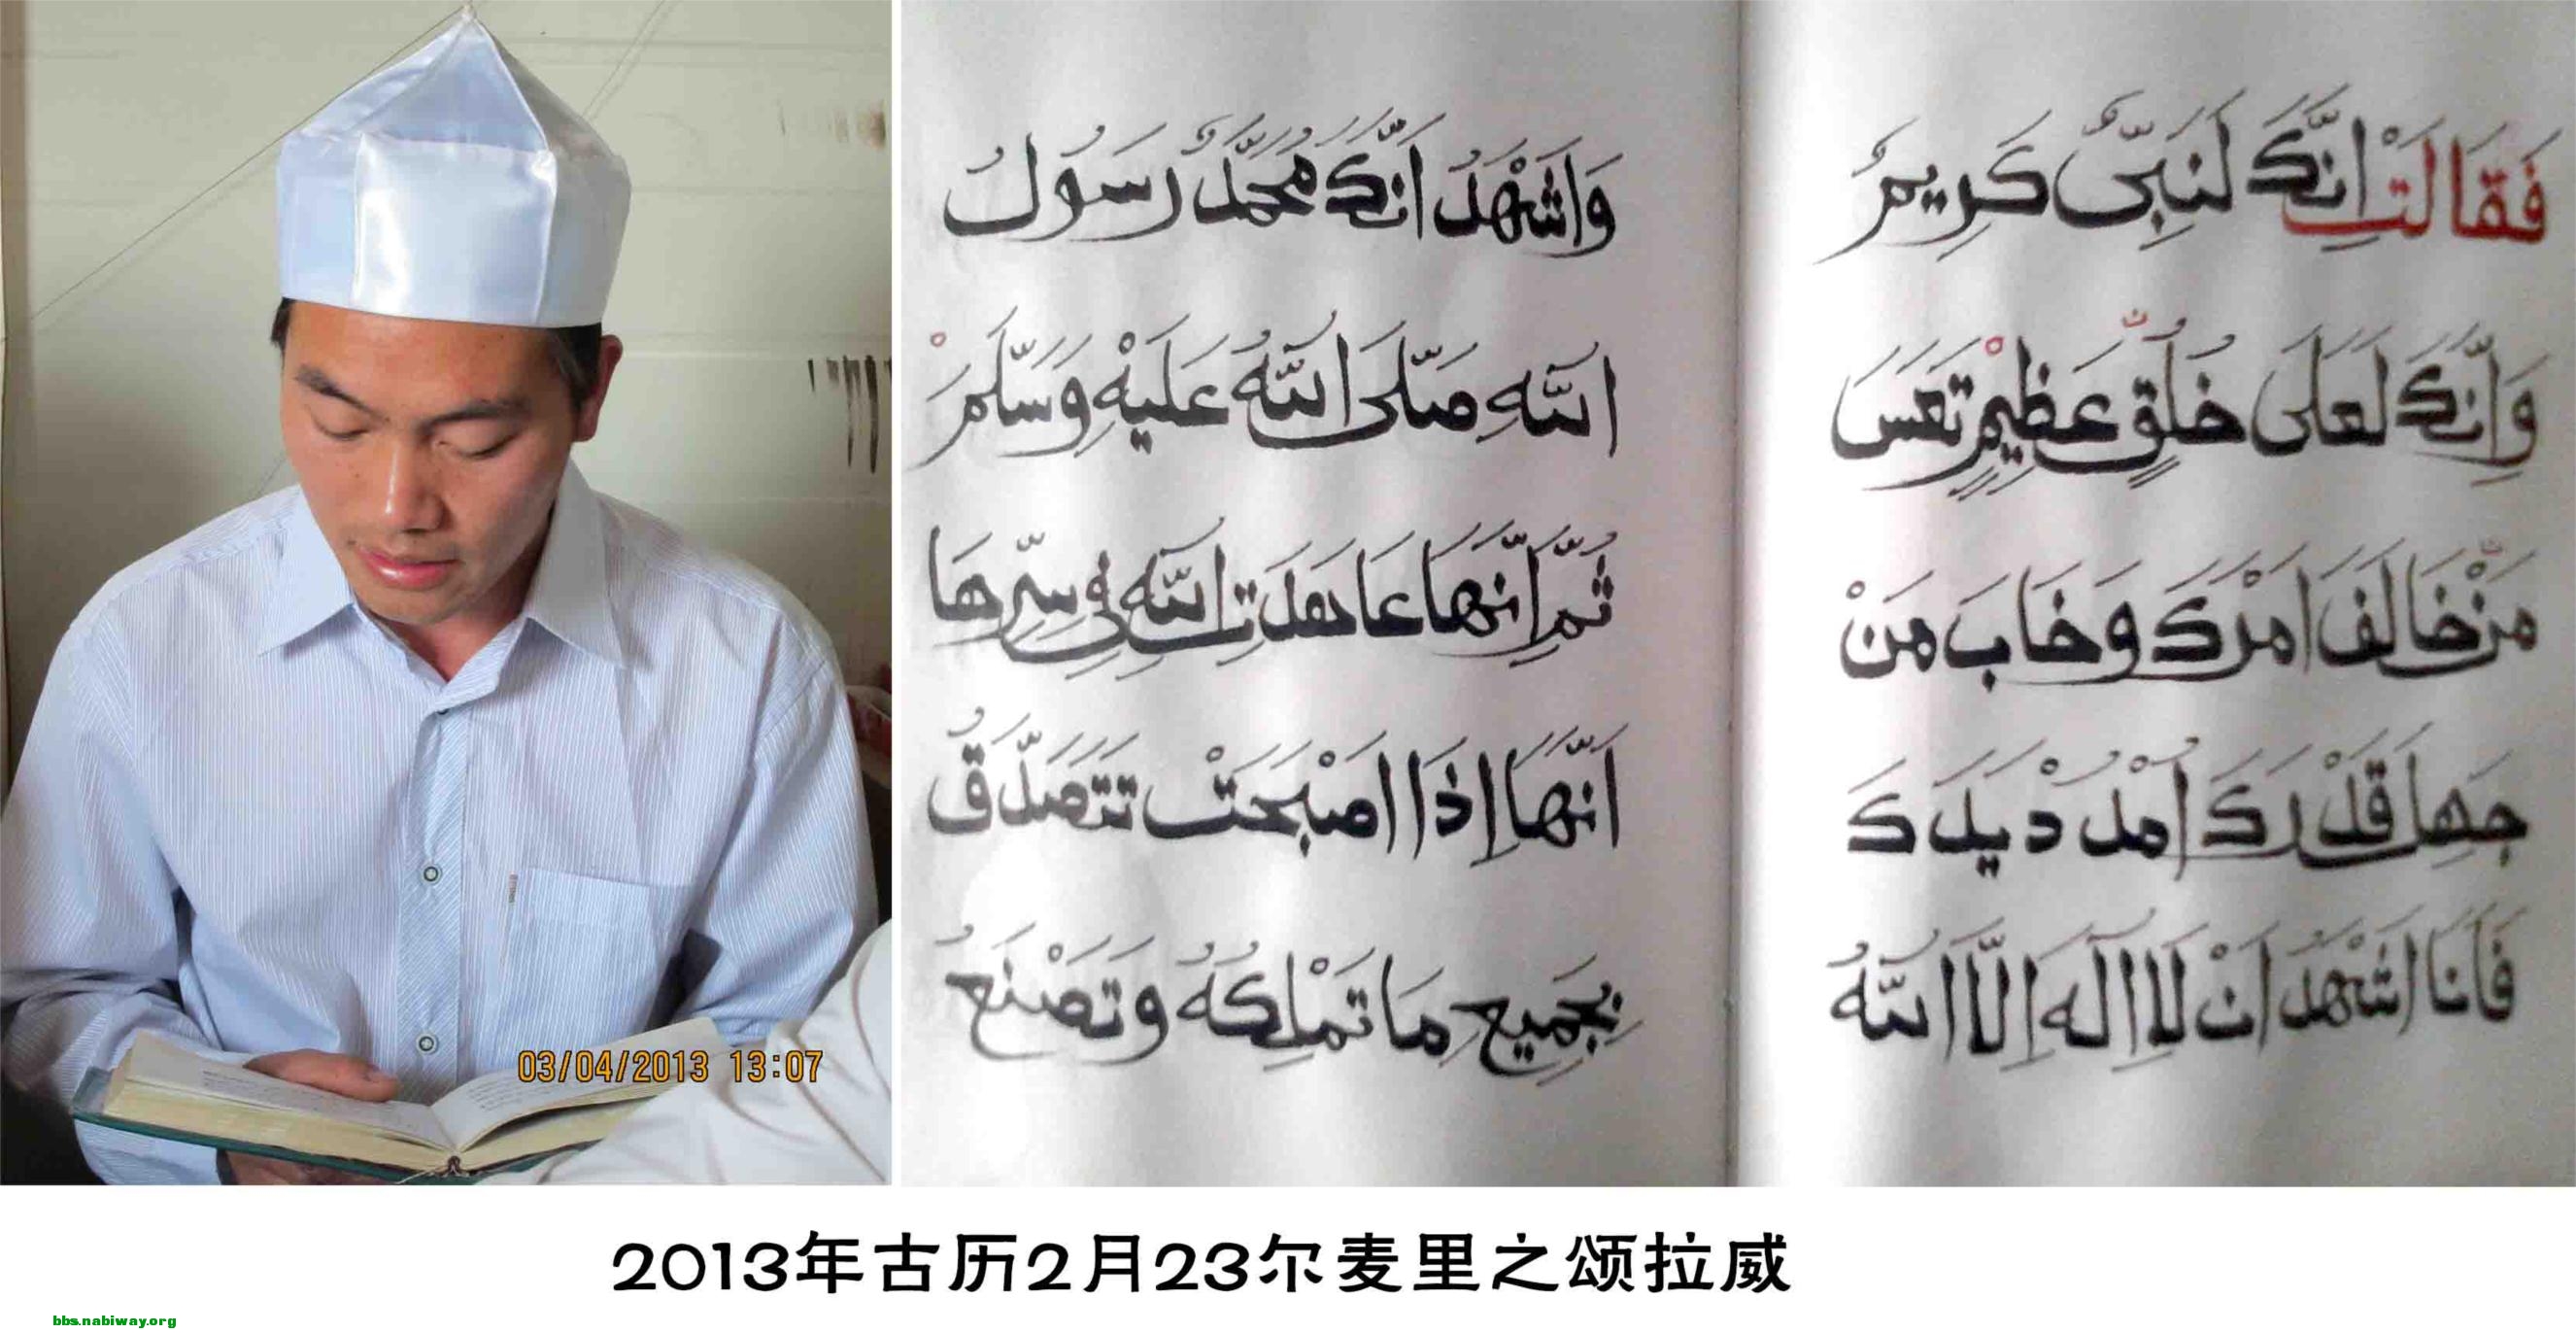 فَقَالَتْ اِنَّكَ لَنَبِىٌّ كَرِيمٌ
وَاِنَّكَ لَعَلَى خُلُقٍ عَظِيمٍ تَعَسَ
مَنْ خَالَفَ اَمْرَكَ وَخَابَ مَنْ
جَهِلَ قَدْرَكَ اُمْدُدْ يَدَكَ
فَاَنَا اَشْهَدُ اَنْ لَا اِلَهَ اِلَّا اللَّهُ
وَاَشْهَدُ اَنَّكَ مُحَمَّدٌ رَسُولُ
اللَّهِ صَلَّى اللَّهُ عَلَيْهِ وَسَلَّمَ
ثُمَّ اِنَّهَا عَاهَدَتِ اللَّهَ فِى سِرِّهَا
اَنَّهَا اِذَا اَصْبَحَتْ تَتَصَدَّقُ
بِجَمِيعِ مَا تَمْلِكُهُ وَتَصْنَعُ
03/04/2013 13:07
2013年古历2月23尔麦里之颂拉威
bbs.nabiway.org